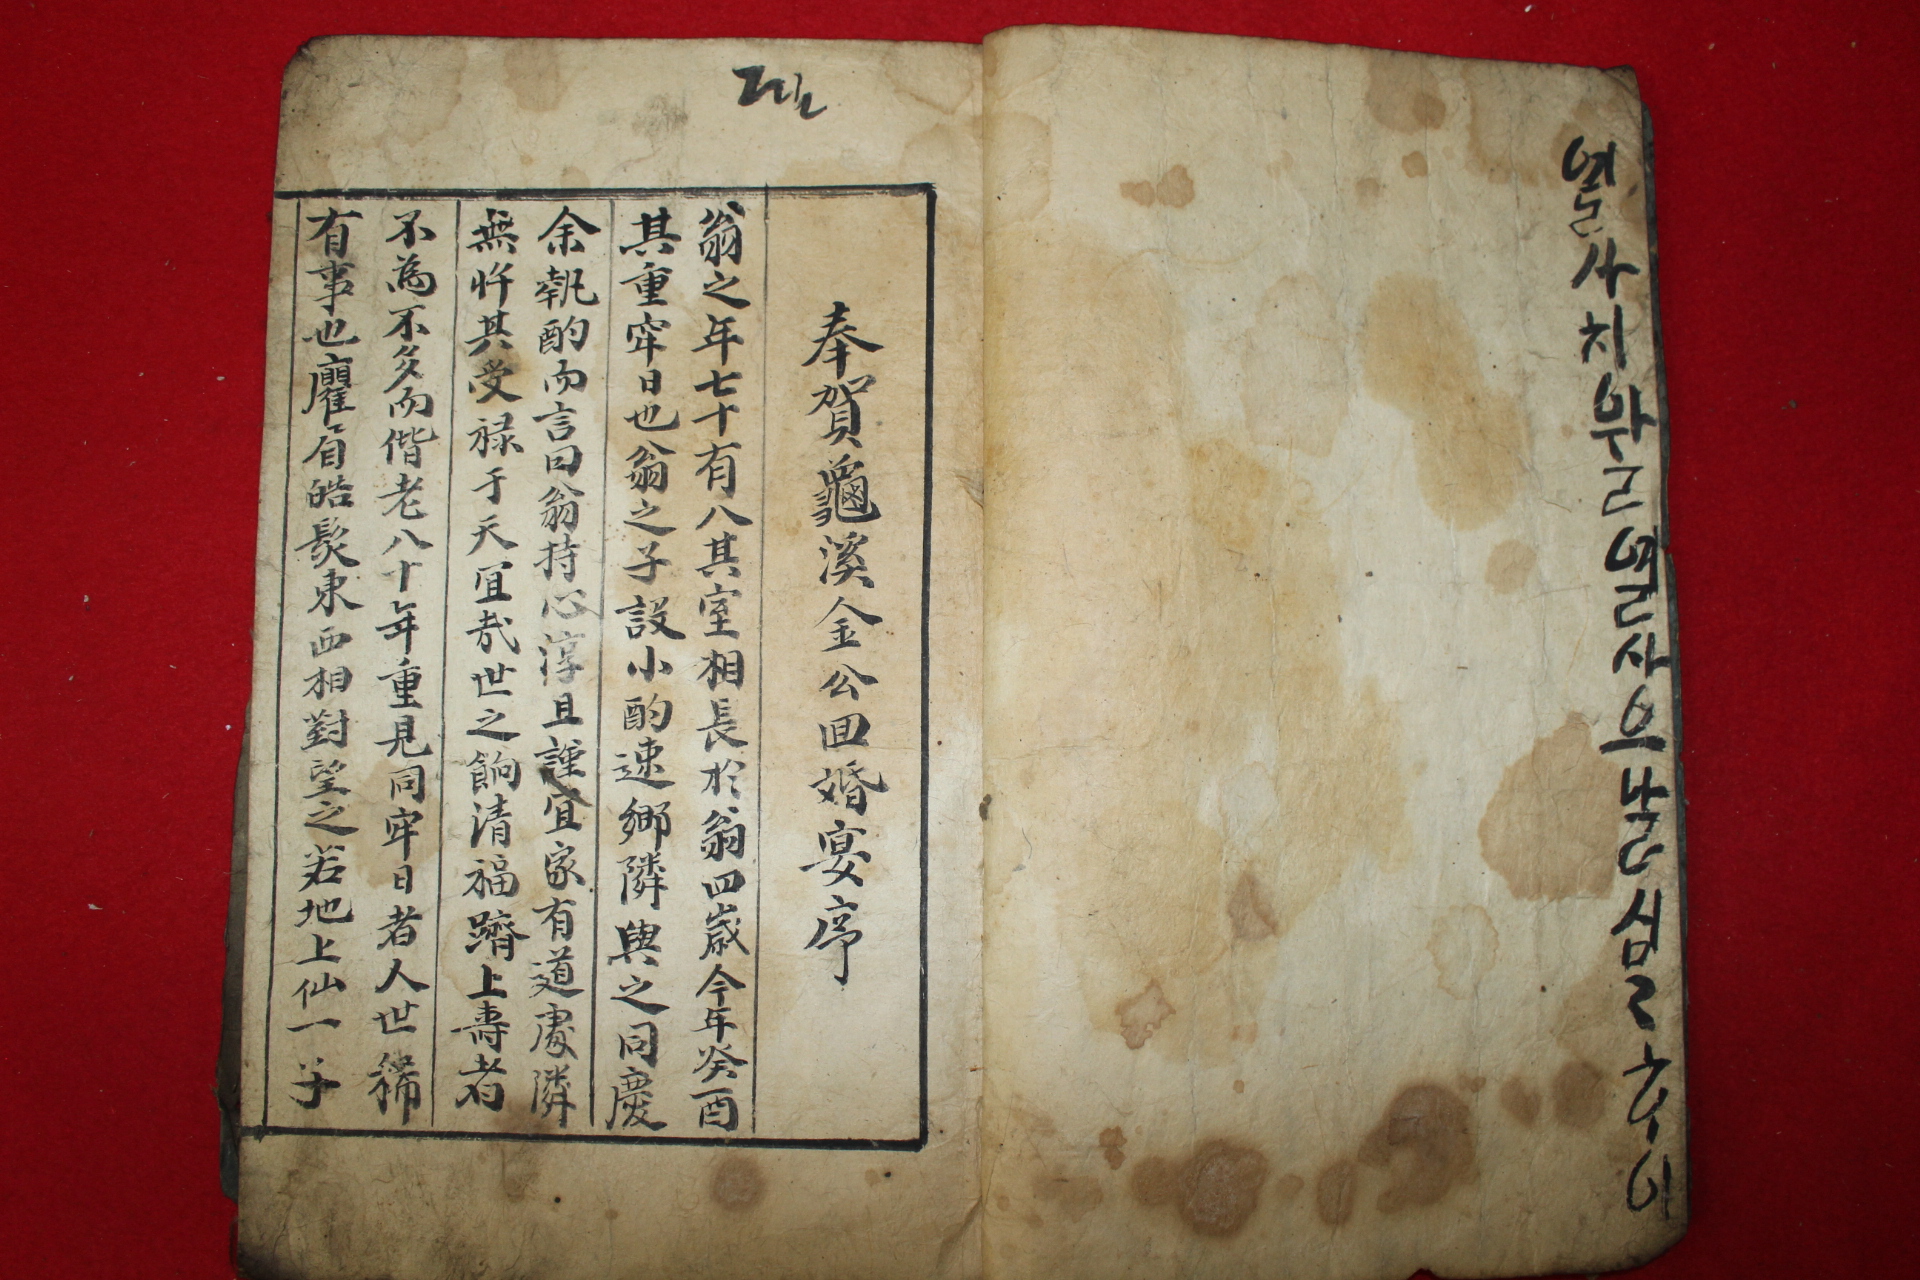 열사치 뿐 열사으 날 심근 추이
奉賀龜溪金公回婚宴序
翁之年七十有八其室相長於翁四歲今年癸酉
其重牢日也翁之子設小酌速鄉隣與之同慶
余執酌而言曰翁持心淳且謹宜家有道處隣
無忤其受祿于天宜哉世之餉清福躋上壽者
不為不多而偕老八十年重見同牢日者人世稀
有事也龐眉皓髮東西相對望之若地上仙一子